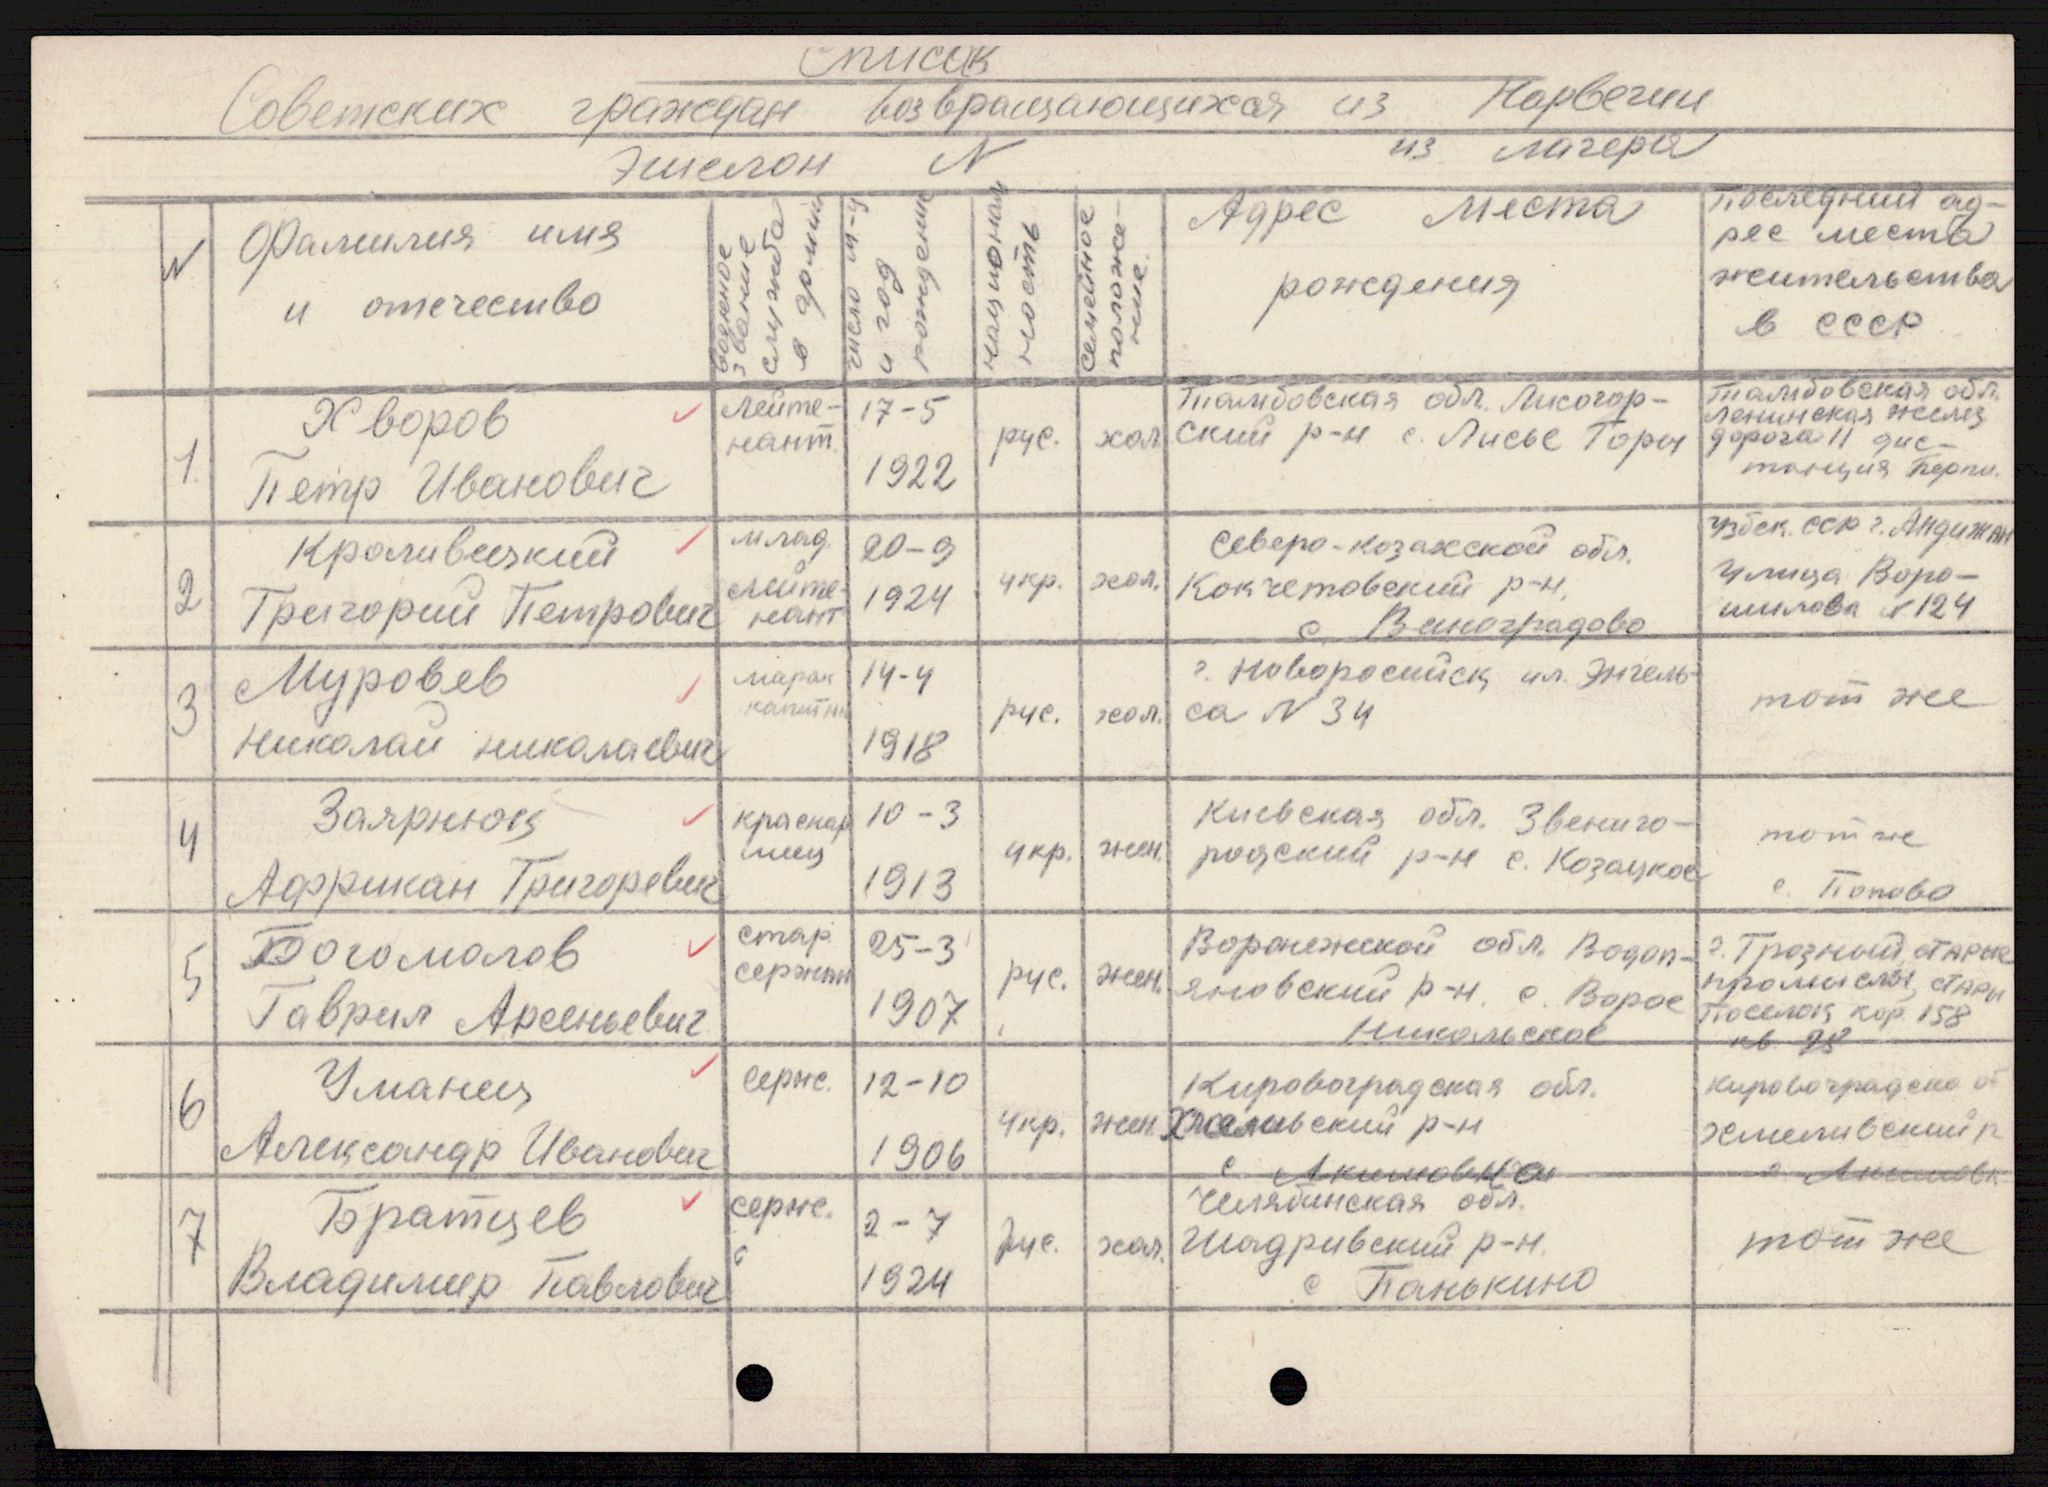 Список
Советских граждан возвращающихся из Норвегии
Эшелон N из лагеря
N
Фамилия имя
и отчество
военное
звание
служба
в армии
число м-ц
и год
рождение
национал
ность
семейное
положе-
ние.
Адрес места
рождения
Последний ад-
рес места
жительства
в СССР
1.
Хворов
Петр Иванович
лейте-
нант.
17-5
1922
рус.
хол
Тамбовская обл. Лисогор-
ский р-н с. Лисье Горы
Тамбовская обл.
Ленинская желез
дорога 11 дис-
танция
2
Кроливецкий
Григорий Петрович
млад.
лейте-
нант
20-9
1924
укр.
хол.
Северо-козахской обл.
Кокчетовский р-н.
с. Виноградово
Узбек. ССР г. Андижан
Улица Воро-
шилова N 124
3
Муровев
Николай николаевич
14-4
1918
рус.
хол.
г. Новоросийск ул. Энгель-
са N 34
тот же
4
Заярнюк
Африкан Григоревич
краснар
меец
10-3
1913
укр.
жен.
Киевская обл. Звениго-
родский р-н с. Козацкое
тот же
с. Попово
5
Богомолов
Гаврил Арсеньевич
стар
сержан
25-3
1907
рус.
жен.
Воронежской обл. Водоп-
яновский р-н. с. Ворое
Никольское
г. Грозный, старые
промислы, стары
Поселок кор 158
кв 28
6
Уманец
Александр Иванович
серж.
12-10
1906
укр.
жен
Кировоградская обл.
Хмеливский р-н
с Акимовка
кировоградско об
хмеливский р
с Акимовк
7
Братцев
Владимир Павлович
серж.
2-7
1924
рус.
хол.
Челябинская обл.
Шадривский р-н.
с Панькино
тот же